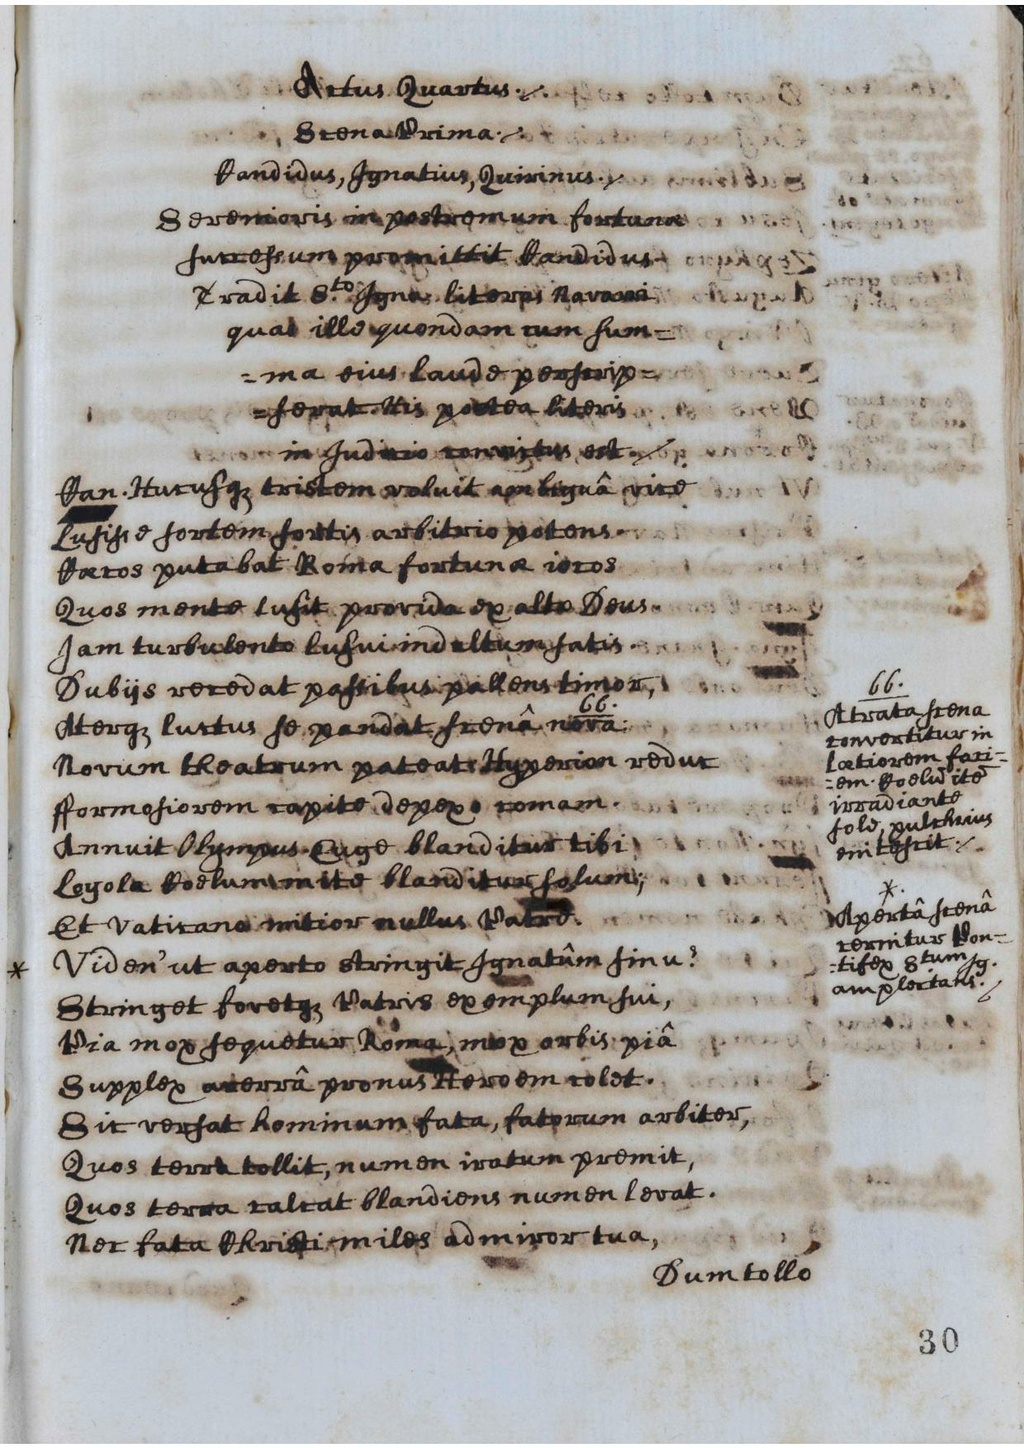 Actus Quartus.
Scena Prima.
Kandidus, Ignatius, Quirinus.
Serenioris in postremum fortunæ
successum promittit Kandidus
Tradit S.to Igna: literas Navarri
quas ille quondam cum sum=
=ma eius laude perscrip=
=serat. His postea literis
in Judicio convictus est.
Kan. Hucusq; tristem voluit ambiguâ vice
Lusisse sortem sortis arbitrio potens.
Kæcos putabat Roma fortunæ iocos
Quos mente lusit provida ex alto Deus.
Jam turbulento lusui indultum satis.
Dubijs recedat passibus pallens timor,
Aterq; luctus se pandat scenâ nova. 66.
Novum theatrum pateat. Hyperion redux
fformosiorem capite depexo comam.
Annuit Olympus. Euge blanditur tibi
Loyola Koelum: mite blanditur solum;
Et Vaticano mitior nullus Patre.
* Viden' ut aperto stringit Ignatûm sinu?
Stringet foretq; Patris exemplum sui,
Pia mox sequetur Roma, mox orbis piâ
Supplex acerrâ pronus Heroem colet.
Sic versat hominum fata, fatorum arbiter,
Quos terra tollit, numen iratum premit,
Quos terra calcat blandiens numen levat.
Nec fata Khristi miles admiror tua,
Dum tollo
66.
Atrata scena
convertitur in
lætiorem faci=
=em. Koelu ite
irradiante
sole, pulchrius
enitescit.
*.
Apertâ scenâ
cernitur Pon=
=tifex Stum Ig.
amplectans.
30